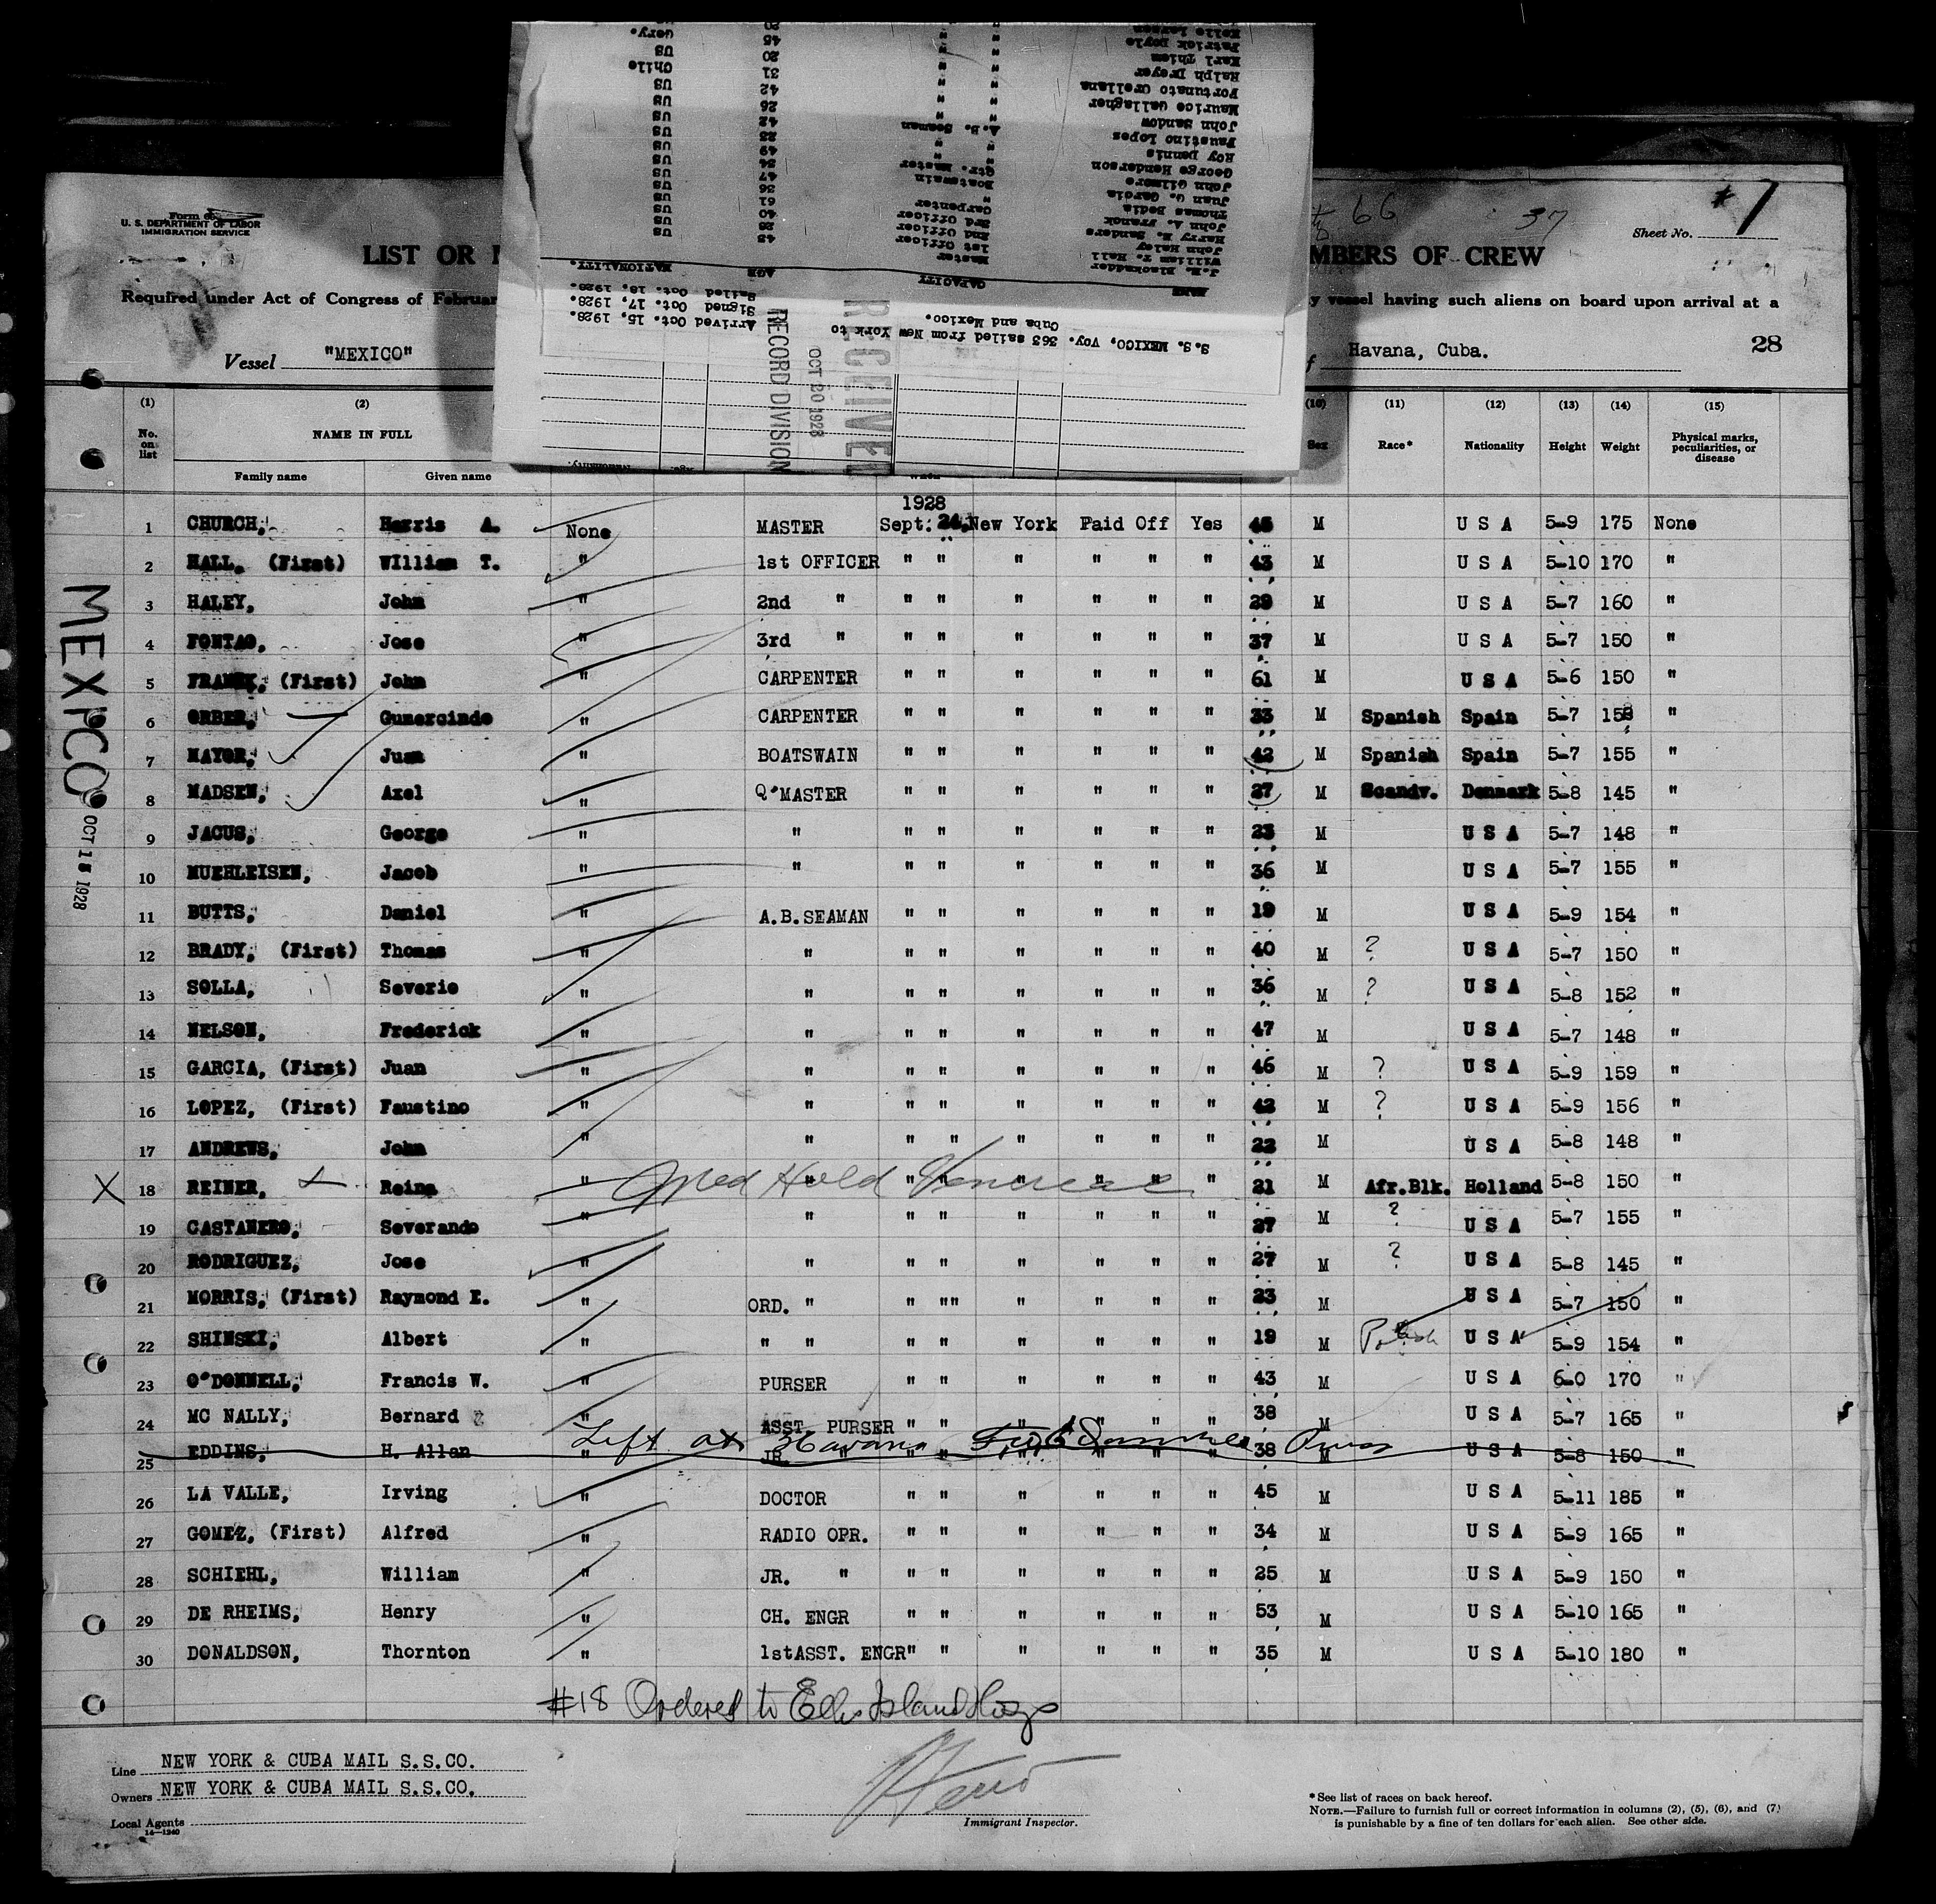 Gery.
Patrick Doyle " " 45 US
Karl Thiem " " 20 US
Ralph Dreyer " " 31 Chile
Fortunato Orellana " " 42 US
Maurice Gallagher " " 26 US
John Sandow A.B. Seaman 42 US
Faustino Lopes
Roy Dennis " 49 US
George Henderson Qtr. Master 34 US
John Gilmore Boatswain 47 US
Juan G. Garcia " 36 US
Thomas Bedia Carpenter 61 US
John A. Franck 3rd Officer 40 US
Harry E. Sanders 2nd Officer
John Haley 1st Officer
William T. Hall Master 43 US
J.E. Blackadder
NAME CAPACITY AGE NATIONALITY.
Sailed Oct. 18, 1928.
Signed Oct. 17, 1928.
Arrived Oct. 15, 1928.
S.S. MEXICO, Voy. 363 sailed from New York to
Cuba and Mexico.
RECEIVED
OCT 20 1928
RECORD DIVISION
U. S. DEPARTMENT OF LABOR
IMMIGRATION SERVICE
66 37 # 1
Sheet No.
LIST OR
MBERS OF CREW
Required under Act of Congress of Februar
y vessel having such aliens on board upon arrival at a
Vessel "MEXICO"
Havana, Cuba. 28
(1) (2) (10) (11) (12) (13) (14) (15)
No. on list NAME IN FULL Sex Race* Nationality Height Weight Physical marks, peculiarities, or disease
Family name Given name
1928
1 CHURCH, Harris A. None MASTER Sept. 24, New York Paid Off Yes 45 M U S A 5-9 175 None
2 HALL, (First) William T. " 1st OFFICER " " " " " " 43 M U S A 5-10 170 "
3 HALEY, John " 2nd " " " " " " " 29 M U S A 5-7 160 "
4 FONTAO, Jose " 3rd " " " " " " " 37 M U S A 5-7 150 "
5 FRANCK, (First) John " CARPENTER " " " " " " 61 M U S A 5-6 150 "
6 ORBER, Gumercindo " CARPENTER " " " " " " 33 M Spanish Spain 5-7 "
7 MAYOR, Juan " BOATSWAIN " " " " " " 42 M Spanish Spain 5-7 155 "
8 MADSEN, Axel " Q'MASTER " " " " " " 27 M Scandv. Denmark 5-8 145 "
9 JACUS, George " " " " " " " " 23 M U S A 5-7 148 "
10 MUEHLEISEN, Jacob " " " " " " " " 36 M U S A 5-7 155 "
11 BUTTS, Daniel " A.B.SEAMAN " " " " " " 19 M U S A 5-9 154 "
12 BRADY, (First) Thomas " " " " " " " " 40 M ? U S A 5-7 150 "
13 SOLLA, Severie " " " " " " " " 36 M ? U S A 5-8 152 "
14 NELSON, Frederick " " " " " " " " 47 M U S A 5-7 148 "
15 GARCIA, (First) Juan " " " " " " " " 46 M ? U S A 5-9 159 "
16 LOPEZ, (First) Faustino " " " " " " " " 42 M ? U S A 5-9 156 "
17 ANDREWS, John " " " " " " " " 22 M U S A 5-8 148 "
X 18 REINER, Reina " Med Hold Venereal " 21 M Afr.Blk. Holland 5-8 150 "
19 CASTANERO, Severando " " " " " " " " 27 M ? U S A 5-7 155 "
20 RODRIGUEZ, Jose " " " " " " " " 27 M ? U S A 5-8 145 "
21 MORRIS, (First) Raymond E. " ORD. " " " " " " " " 23 M U S A 5-7 150 "
22 SHINSKI, Albert " " " " " " " " " 19 M Polish U S A 5-9 154 "
23 O'DONNELL, Francis W. " PURSER " " " " " " 43 M U S A 6-0 170 "
24 MC NALLY, Bernard " ASST PURSER " " " " " " 38 M U S A 5-7 165 "
Left at Havana
25 EDDINS, H. Allan " JR. " " " " " " " 38 M U S A 5-8 150 "
26 LA VALLE, Irving " DOCTOR " " " " " " 45 M U S A 5-11 185 "
27 GOMEZ, (First) Alfred " RADIO OPR. " " " " " " 34 M U S A 5-9 165 "
28 SCHIEHL, William " JR. " " " " " " " 25 M U S A 5-9 150 "
29 DE RHEIMS, Henry " CH. ENGR " " " " " " 53 M U S A 5-10 165 "
30 DONALDSON, Thornton " 1stASST. ENGR " " " " " " 35 M U S A 5-10 180 "
#18 Ordered to Ellis Island Hosp
MEXICO
OCT 15 1928
Line NEW YORK & CUBA MAIL S.S.CO.
Owners NEW YORK & CUBA MAIL S.S.CO.
Local Agents
14-1240
Immigrant Inspector.
*See list of races on back hereof.
NOTE.—Failure to furnish full or correct information in columns (2), (5), (6), and (7)
is punishable by a fine of ten dollars for each alien. See other side.